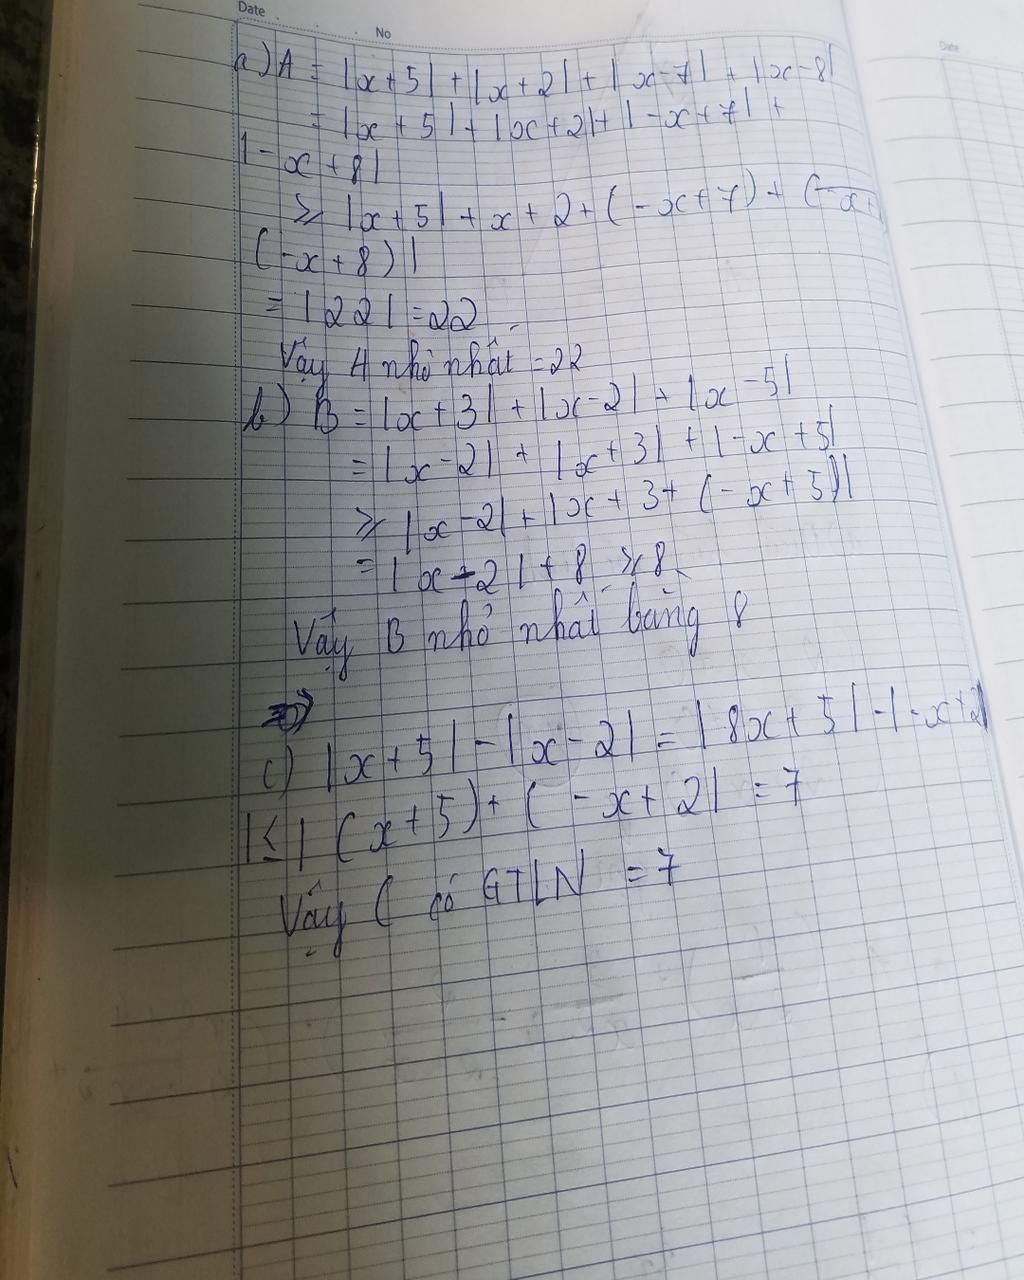 Date
No
Date
a) A = |x+5| + |x+2| + |x-7| + |x-8|
= |x+5| + |x+2| + |-x+7| +
|-x+8|
≥ |x+5| + x+2+(-x+7) +
(-x+8)|
= |22| = 22
Vậy A nhỏ nhất = 22
b) B = |x+3| + |x-2| + |x-5|
= |x-2| + |x+3| + |-x+5|
≥ |x-2| + |x+3+(-x+5)|
= |x-2| + 8 ≥ 8
Vậy B nhỏ nhất bằng 8
c) |x+5| - |x-2| = |8x+5| - |-x+2|
≤ |(x+5) + (-x+2| = 7
Vậy C có GTLN = 7